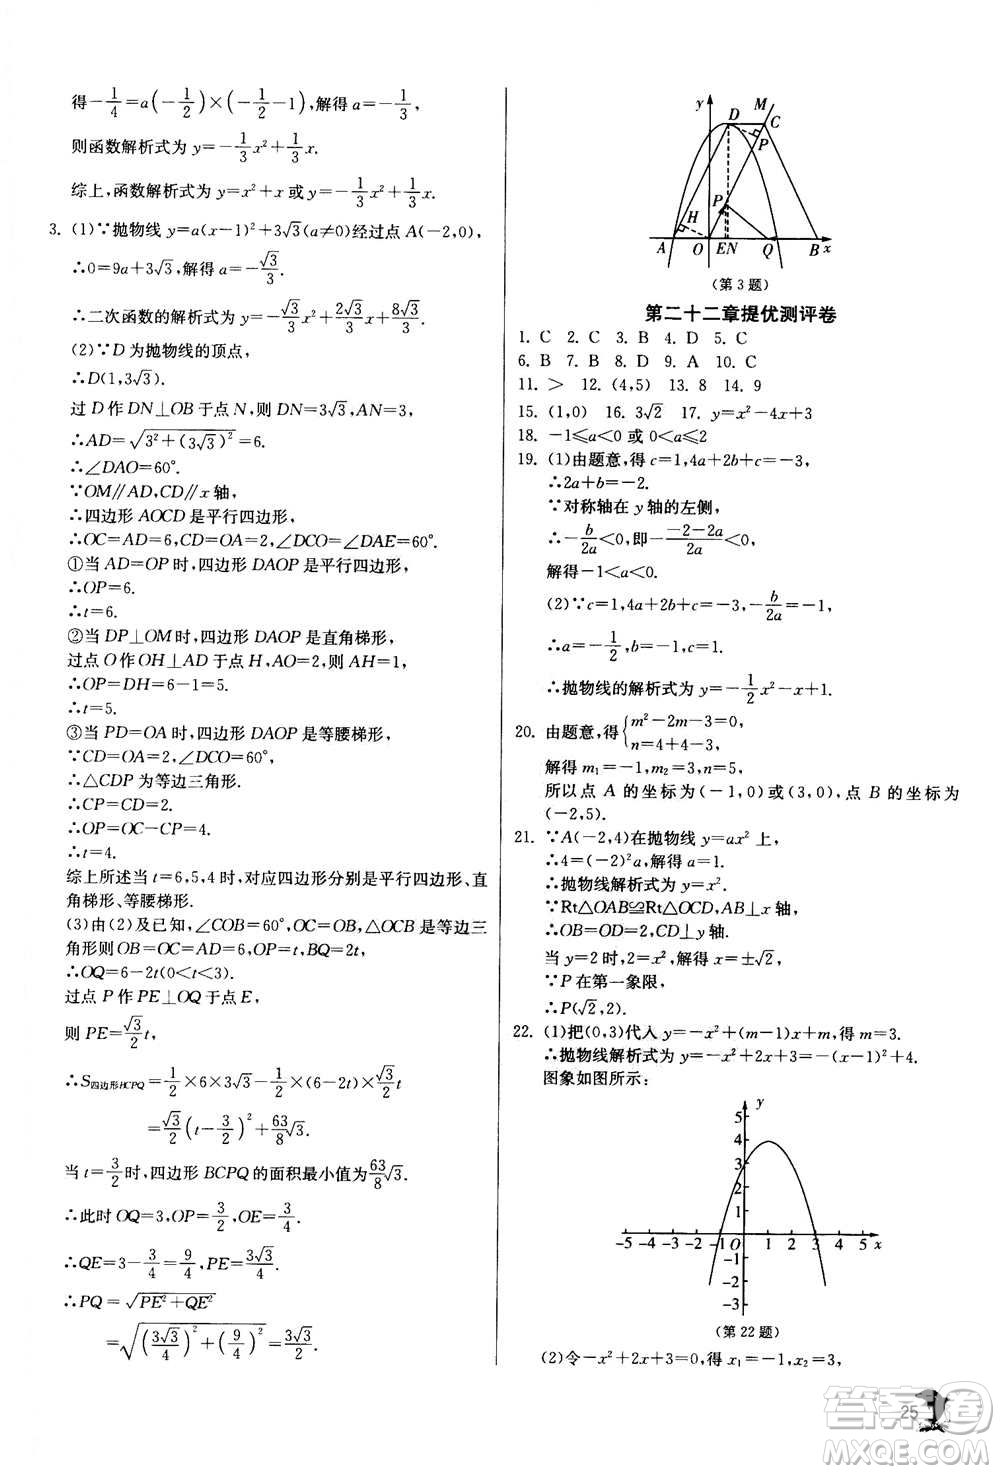 得-1/4=a(-1/2)×(-1/2-1),解得 a=-1/3,
则函数解析式为 y=-1/3x²+1/3x.
综上,函数解析式为 y=x²+x或y=-1/3x²+1/3x.
3. (1)∵抛物线 y=a(x-1)²+3√3(a≠0)经过点 A(-2,0),
∴0=9a+3√3,解得 a=-√3/3.
∴二次函数的解析式为 y=-√3/3x²+2√3/3x+8√3/3.
(2)∵D为抛物线的顶点,
∴D(1,3√3).
过 D 作 DN⊥OB于点 N,则 DN=3√3,AN=3,
∴AD=√(3²+(3√3)²)=6.
∴∠DAO=60°.
∵OM∥AD,CD∥x 轴,
∴四边形 AOCD 是平行四边形,
∴OC=AD=6,CD=OA=2,∠DCO=∠DAE=60°.
①当 AD=OP 时,四边形 DAOP 是平行四边形,
∴OP=6.
∴t=6.
②当 DP⊥OM时,四边形 DAOP是直角梯形,
过点 O作 OH⊥AD 于点 H,AO=2,则 AH=1,
∴OP=DH=6-1=5.
∴t=5.
③当 PD=OA 时,四边形 DAOP 是等腰梯形,
∵CD=OA=2,∠DCO=60°,
∴△CDP 为等边三角形.
∴CP=CD=2.
∴OP=OC-CP=4.
∴t=4.
综上所述当 t=6,5,4 时,对应四边形分别是平行四边形、直
角梯形、等腰梯形.
(3)由(2)及已知,∠COB=60°,OC=OB,△OCB是等边三
角形则OB=OC=AD=6,OP=t,BQ=2t,
∴OQ=6-2t(0<t<3).
过点 P 作 PE⊥OQ于点 E,
则 PE=√3/2t,
∴S四边形BCPQ=1/2×6×3√3-1/2(6-2t)×√3/2t
=√3/2(t-3/2)²+63/8√3.
当 t=3/2时,四边形 BCPQ的面积最小值为63/8√3.
∴此时 OQ=3,OP=3/2,OE=3/4.
∴QE=3-3/4=9/4,PE=3√3/4.
∴PQ=√(PE²+QE²)
=√((3√3/4)²+(9/4)²)=3√3/2.
y D M C P P H A O EN Q B x
(第 3 题)
第二十二章提优测评卷
1. C 2. C 3. B 4. D 5. C
6. B 7. B 8. D 9. A 10. C
11. > 12. (4,5) 13. 8 14. 9
15. (1,0) 16. 3√2 17. y=x²-4x+3
18. -1≤a<0 或 0<a≤2
19. (1)由题意,得 c=1,4a+2b+c=-3,
∴2a+b=-2.
∵对称轴在 y 轴的左侧,
∴-b/2a<0,即-(-2-2a)/2a<0,
解得-1<a<0.
(2)∵c=1,4a+2b+c=-3,-b/2a=-1,
∴a=-1/2,b=-1,c=1.
∴抛物线的解析式为 y=-1/2x²-x+1.
20. 由题意,得{m²-2m-3=0, n=4+4-3,
解得 m₁=-1,m₂=3,n=5,
所以点 A 的坐标为(-1,0)或(3,0),点 B 的坐标为
(-2,5).
21. ∵A(-2,4)在抛物线 y=ax² 上,
∴4=(-2)²a,解得 a=1.
∴抛物线解析式为 y=x².
∵Rt△OAB≌Rt△OCD,AB⊥x 轴,
∴OB=OD=2,CD⊥y轴.
当 y=2 时,2=x²,解得 x=±√2.
∵P 在第一象限,
∴P(√2,2).
22. (1)把(0,3)代入 y=-x²+(m-1)x+m,得 m=3.
∴抛物线解析式为 y=-x²+2x+3=-(x-1)²+4.
图象如图所示:
y 5 4 3 2 1 -5 -4 -3 -2 -1 O 1 2 3 4 5 x -1 -2 -3
(第 22 题)
(2)令-x²+2x+3=0,得 x₁=-1,x₂=3,
25
答案圈
MXQE.COM